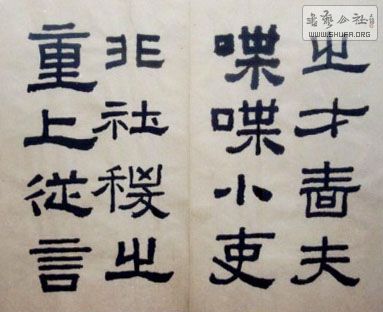 書藝公社
WWW.SHUFA.ORG
之才嗇夫
喋喋小吏
非社稷之
重上從言